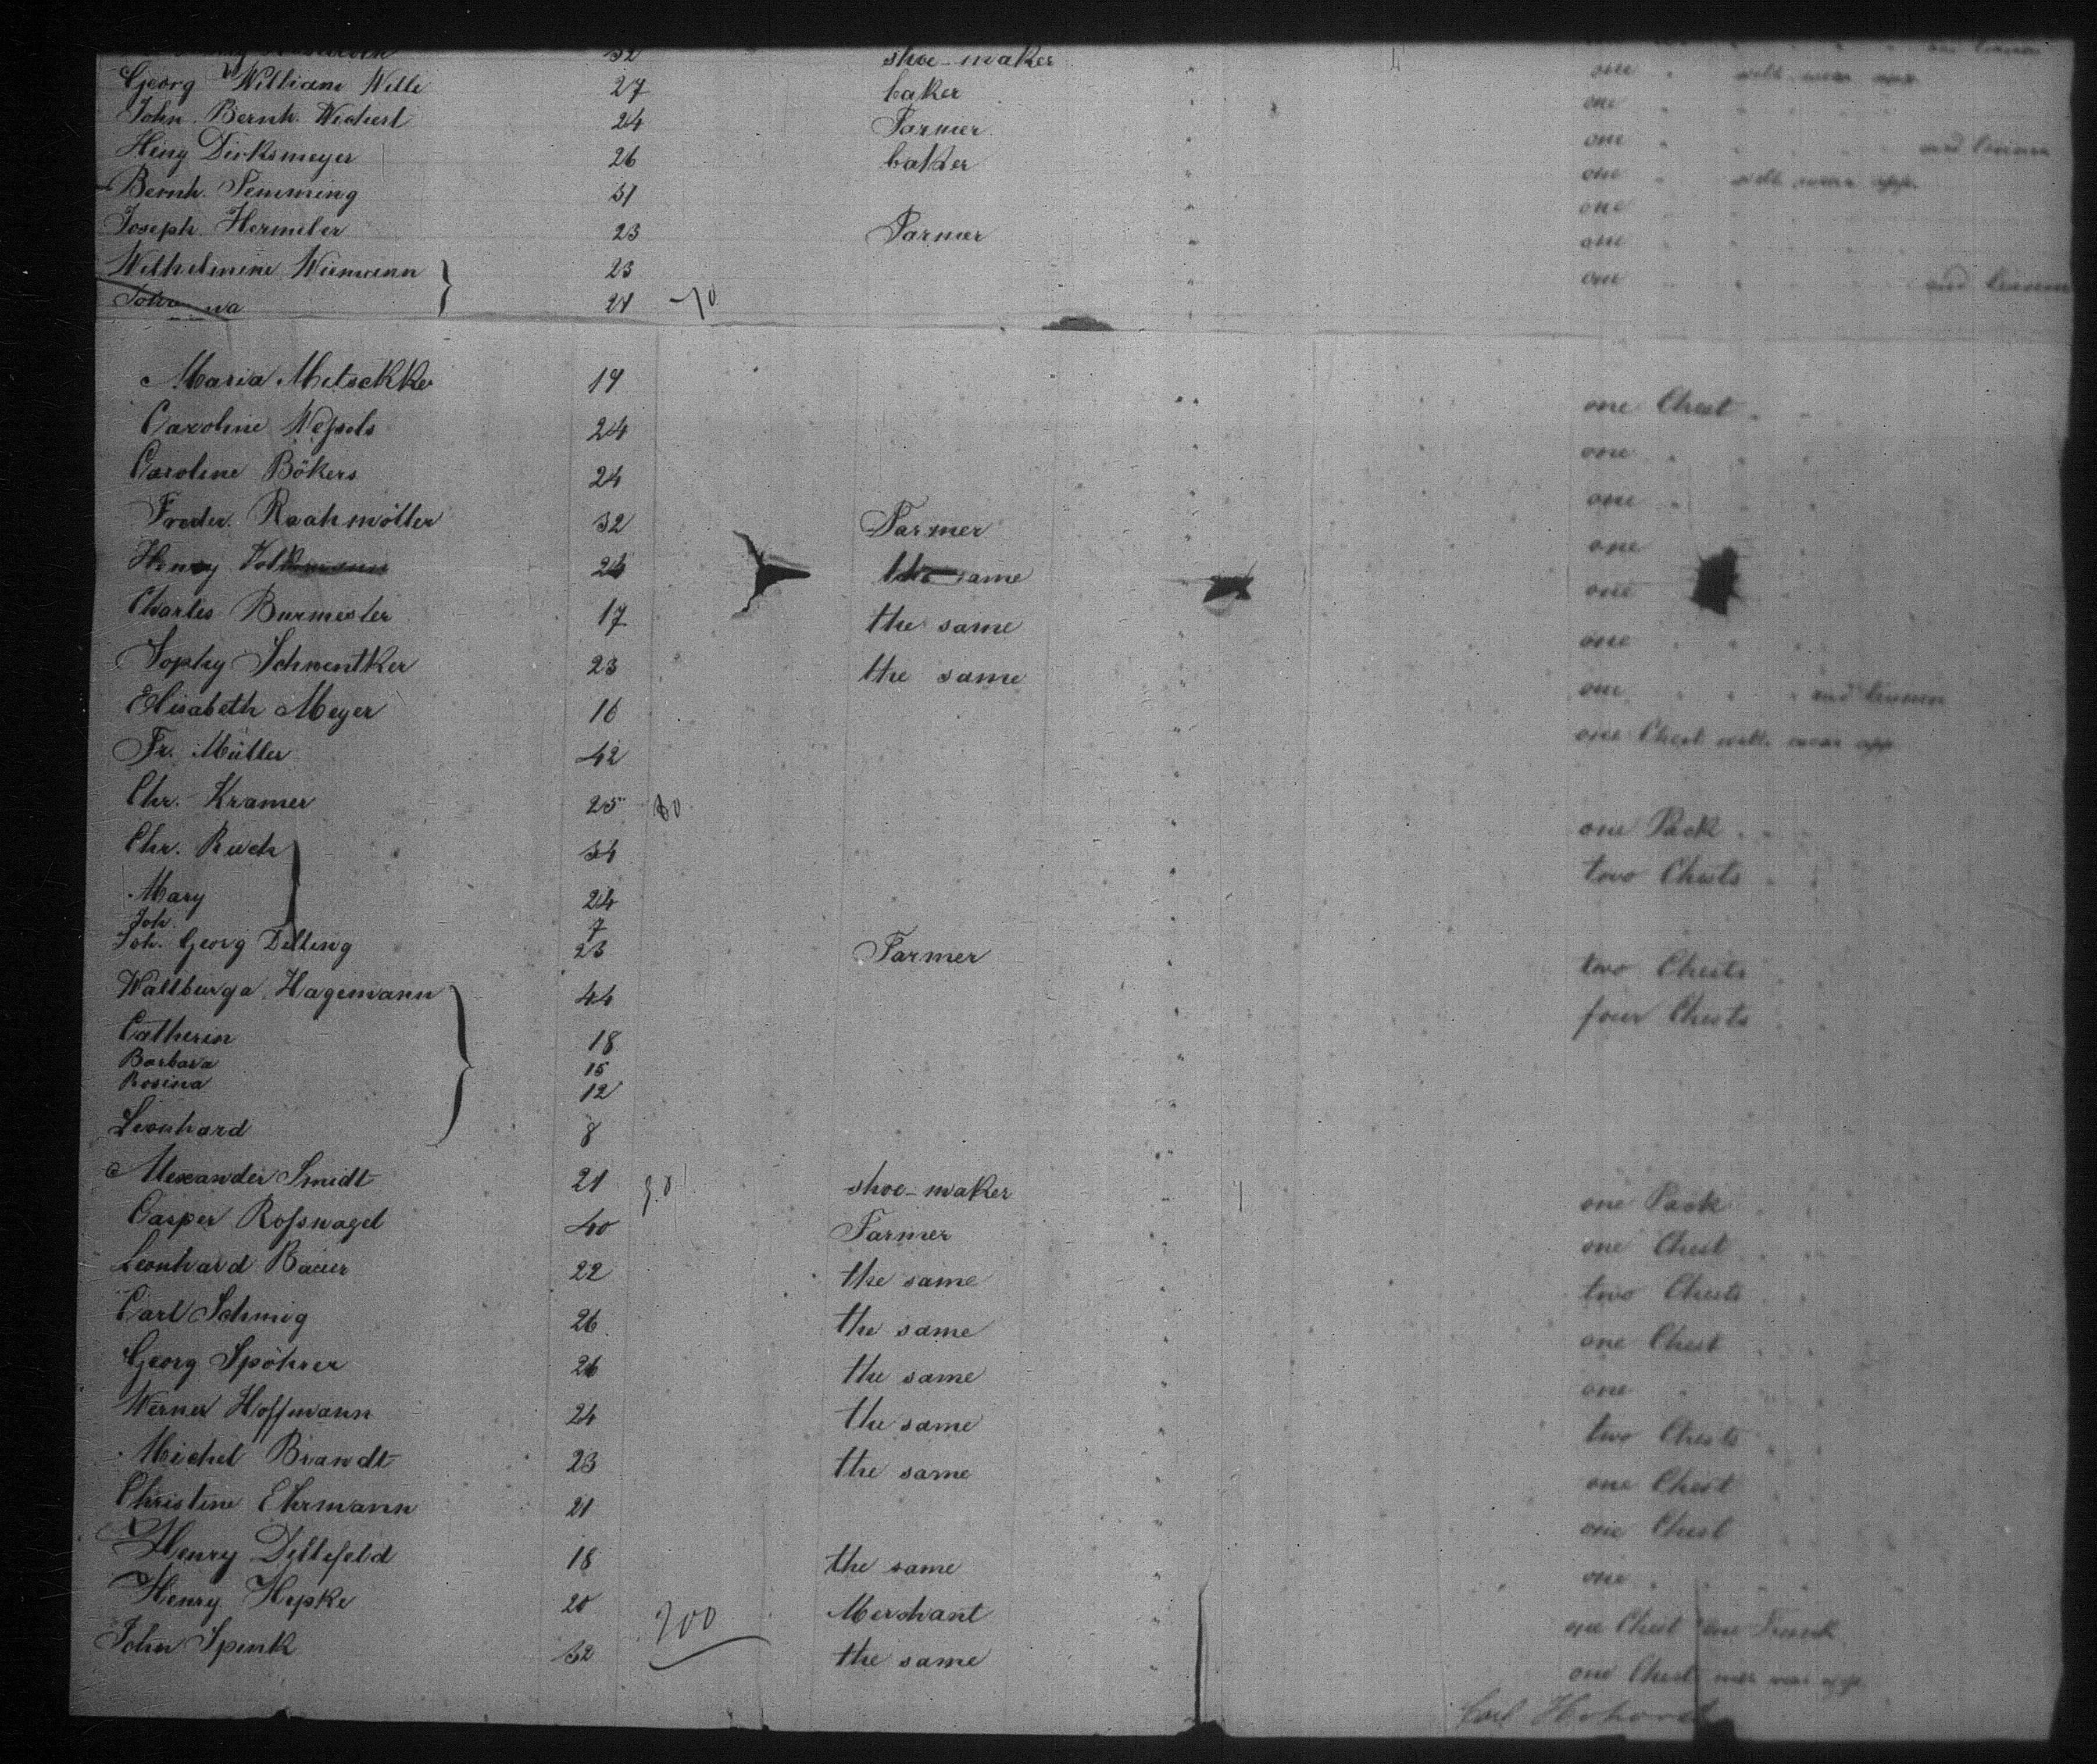 32 shoe-maker
Georg William Wille 27 baker " one " with wear app.
John Bernh. Wichert 24 Farmer " one "
Hing Dirksmeyer 26 baker " one " and linnen
Bernh. Temming 31 " one " with wear app.
Joseph Hermeler 23 Farmer " one "
Wilhelmine Wiemann 23 " one "
21 " one " and linnen
Maria Metsckke 19 " one Chest "
Caroline Weßels 24 " one "
Caroline Bökers 24 " one "
Freder. Raahmöller 32 Farmer " one "
Henry Volkmann 24 the same one
Charles Burmester 17 the same " one "
Sophy Schwentker 23 the same " one " and linnen
Elisabeth Meyer 16 " one Chest with wear app
Fr. Müller 42 "
Chr. Kramer 25 " one Pack "
Chr. Ruch 34 " two Chests "
Mary 24 "
Joh. 7
Joh. Georg Delling 23 Farmer " two Chests "
Wallburga Hagemann 44 " four Chests
Catherin 18 "
Barbara 15
Rosina 12 "
Leonhard 8 "
Alexander Smidt 21 shoe-maker one Pack
Casper Roßnagel 40 Farmer " one Chest "
Leonhard Bauer 22 the same " two Chests "
Carl Schmig 26 the same " one Chest "
Georg Spöhrer 26 the same " one "
Werner Hoffmann 24 the same " two Chests "
Michel Brandt 23 the same " one Chest
Christine Ehrmann 21 " one Chest
Henry Dettefeld 18 the same " one "
Henry Hepke 20 200 Merchant one Chest one Trunk
John Spenk 32 the same " one Chest wear app
Carl